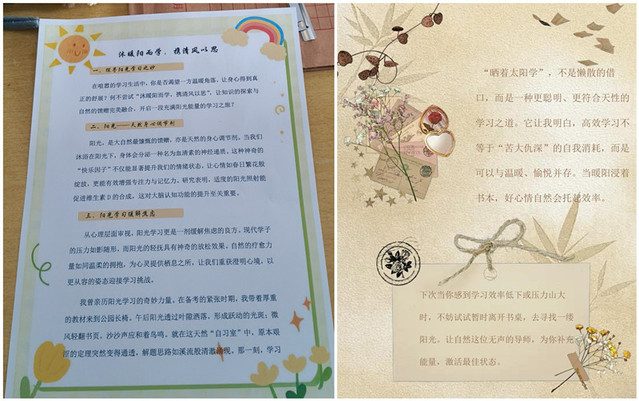 沐暖阳而学，携清风以思
一、探寻阳光学习之妙
在喧嚣的学习生活中，你是否渴望一方温暖角落，让身心得到真
正的舒展？何不尝试“沐暖阳而学，携清风以思”，让知识的探索与
自然的馈赠完美融合，开启一段充满阳光能量的学习之旅？
二、阳光——天然身心调节剂
阳光，是大自然最慷慨的馈赠，亦是天然的身心调节剂。当我们
沐浴在阳光下，身体会分泌一种名为血清素的神经递质，这种神奇的
“快乐因子”不仅能显著提升我们的情绪状态，让心情如春日繁花般
绽放，更能有效增强专注力与记忆力。研究表明，适度的阳光照射能
促进维生素D的合成，这对大脑认知功能的提升至关重要。
三、阳光学习缓解焦虑
从心理层面审视，阳光学习更是一剂缓解焦虑的良方。现代学子
的压力如影随形，而阳光的轻抚具有神奇的放松效果。自然的疗愈力
量如同温柔的拥抱，为心灵提供栖息之所，让我们重获澄明心境，以
更从容的姿态迎接学习挑战。
我曾亲历阳光学习的奇妙力量。在备考的紧张时期，我带着厚重
的教材来到公园长椅，午后阳光透过叶隙洒落，形成跃动的光斑；微
风轻翻书页，沙沙声应和着鸟鸣。就在这天然“自习室”中，原本艰
涩的定理突然变得通透，解题思路如溪流般清澈涌现。那一刻，学习
“晒着太阳学”，不是懒散的借
口，而是一种更聪明、更符合天性的
学习之道。它让我明白，高效学习不
等于“苦大仇深”的自我消耗，而是
可以与温暖、愉悦并存。当暖阳浸着
书本，好心情自然会托起效率。
下次当你感到学习效率低下或压力山大
时，不妨试试暂时离开书桌，去寻找一缕
阳光。让自然这位无声的导师，为你补充
能量，激活最佳状态。